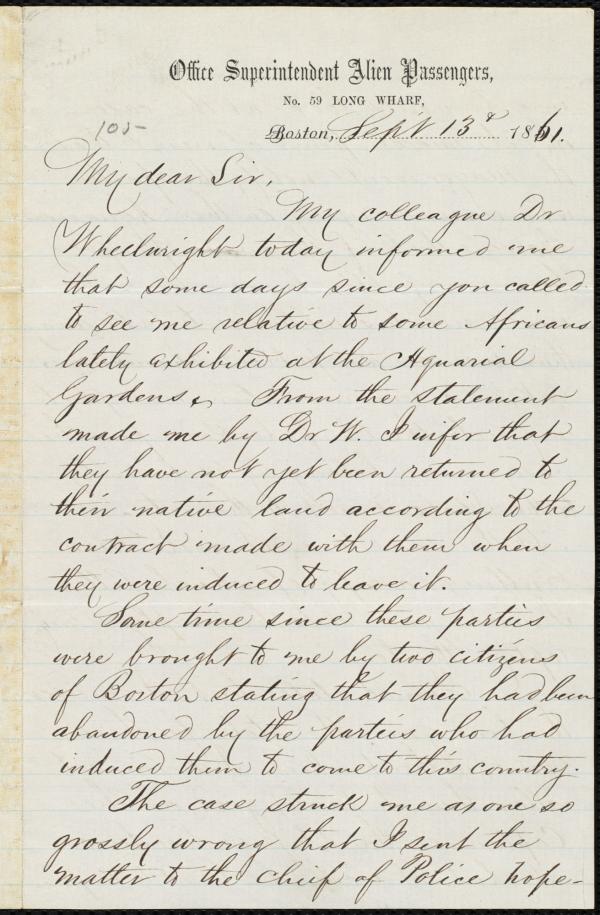 Office Superintendent Alien Passengers,
No. 59 LONG WHARF,
105-
Boston, Sept 13th 1861.
My dear Sir,
My colleague Dr
Wheelwright today informed me
that some days since you called
to see me relative to some Africans
lately exhibited at the Aquarial
Gardens. From the statement
made me by Dr W. I infer that
they have not yet been returned to
their native land according to the
contract made with them when
they were induced to leave it.
Some time since these parties
were brought to me by two citizens
of Boston stating that they had been
abandoned by the parties who had
induced them to come to this country.
The case struck me as one so
grossly wrong that I sent the
matter to the Chief of Police hope-